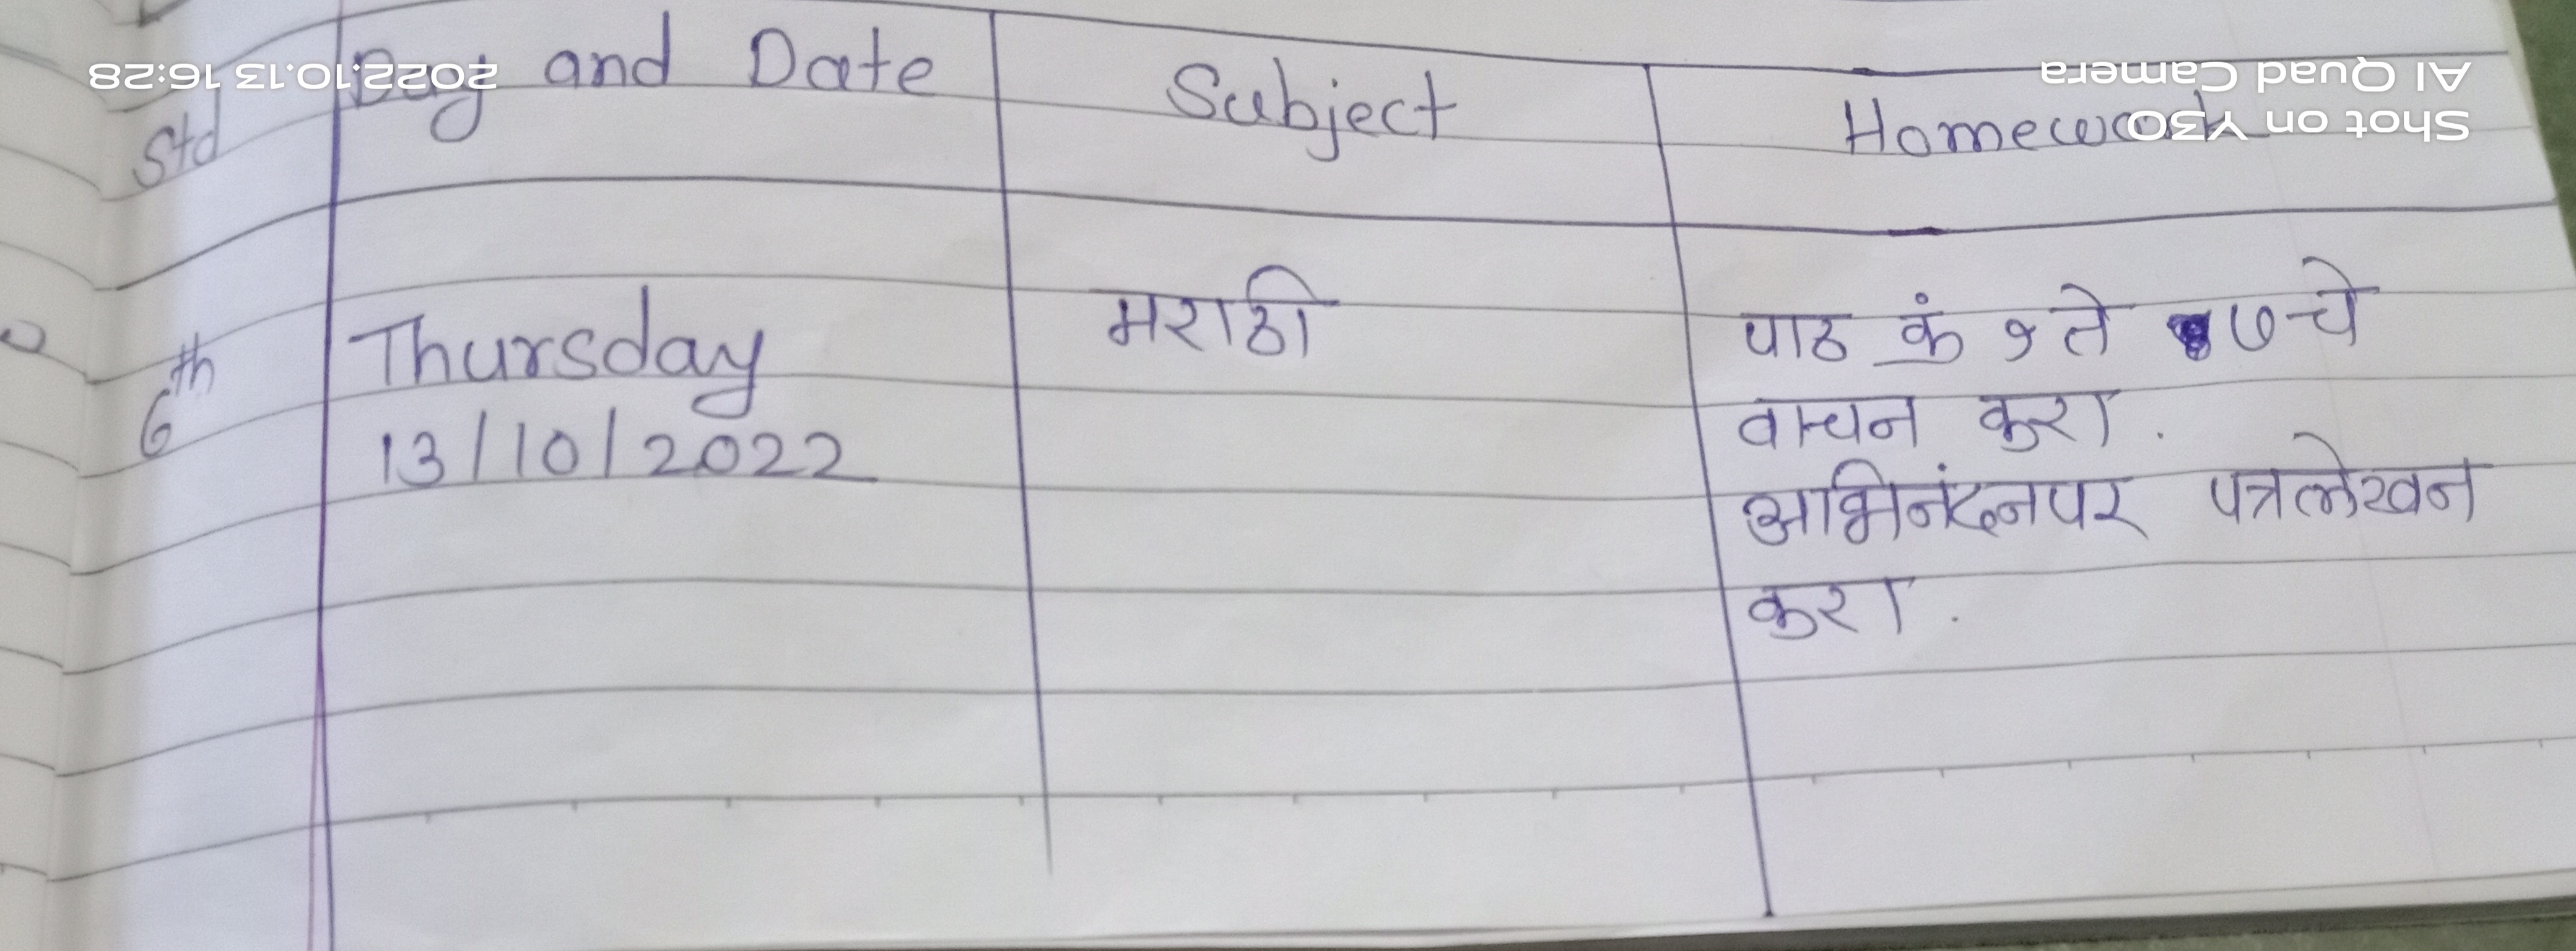 Std Day and Date Subject Homework
6th Thursday मराठी पाठ क्रं १ ते ७ चे
13/10/2022 वाचन करा.
अभिनंदनपर पत्रलेखन
करा.
Shot on Y30
AI Quad Camera
2022.10.13 16:28